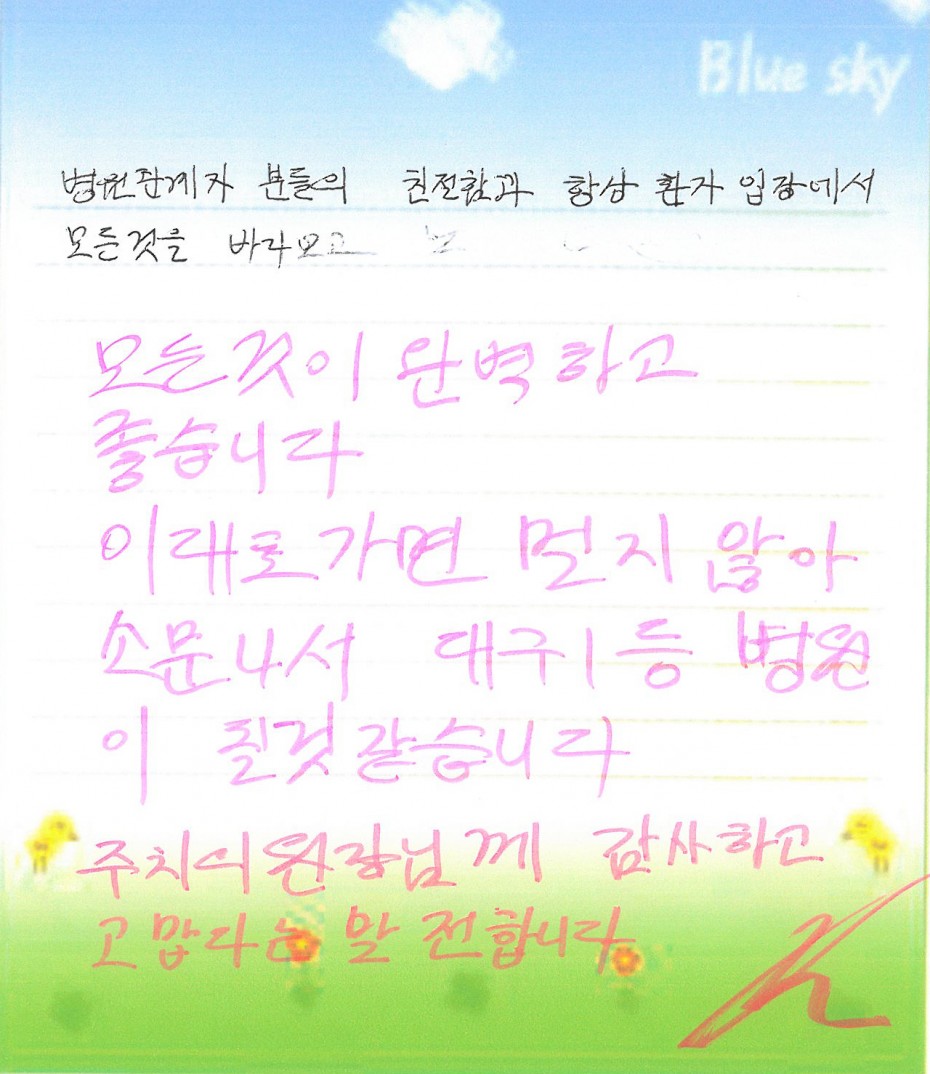 Blue sky
병원관계자 분들의 친절함과 항상 환자 입장에서
모든것을 바라보고
모든것이 완벽하고
좋습니다
이대로가면 멀지 않아
소문나서 대구1등 병원
이 될것같습니다
주치의원장님께 감사하고
고맙다는 말 전합니다